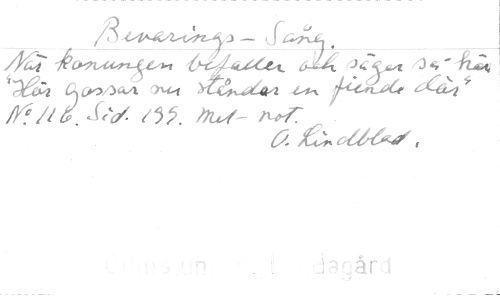 Bevarings-Sång.
När konungen befaller och säger så här
"Hör gossar nu ståndar en fiende där"
No. 116. Sid. 199. Mel- not.
O. Lindblad.